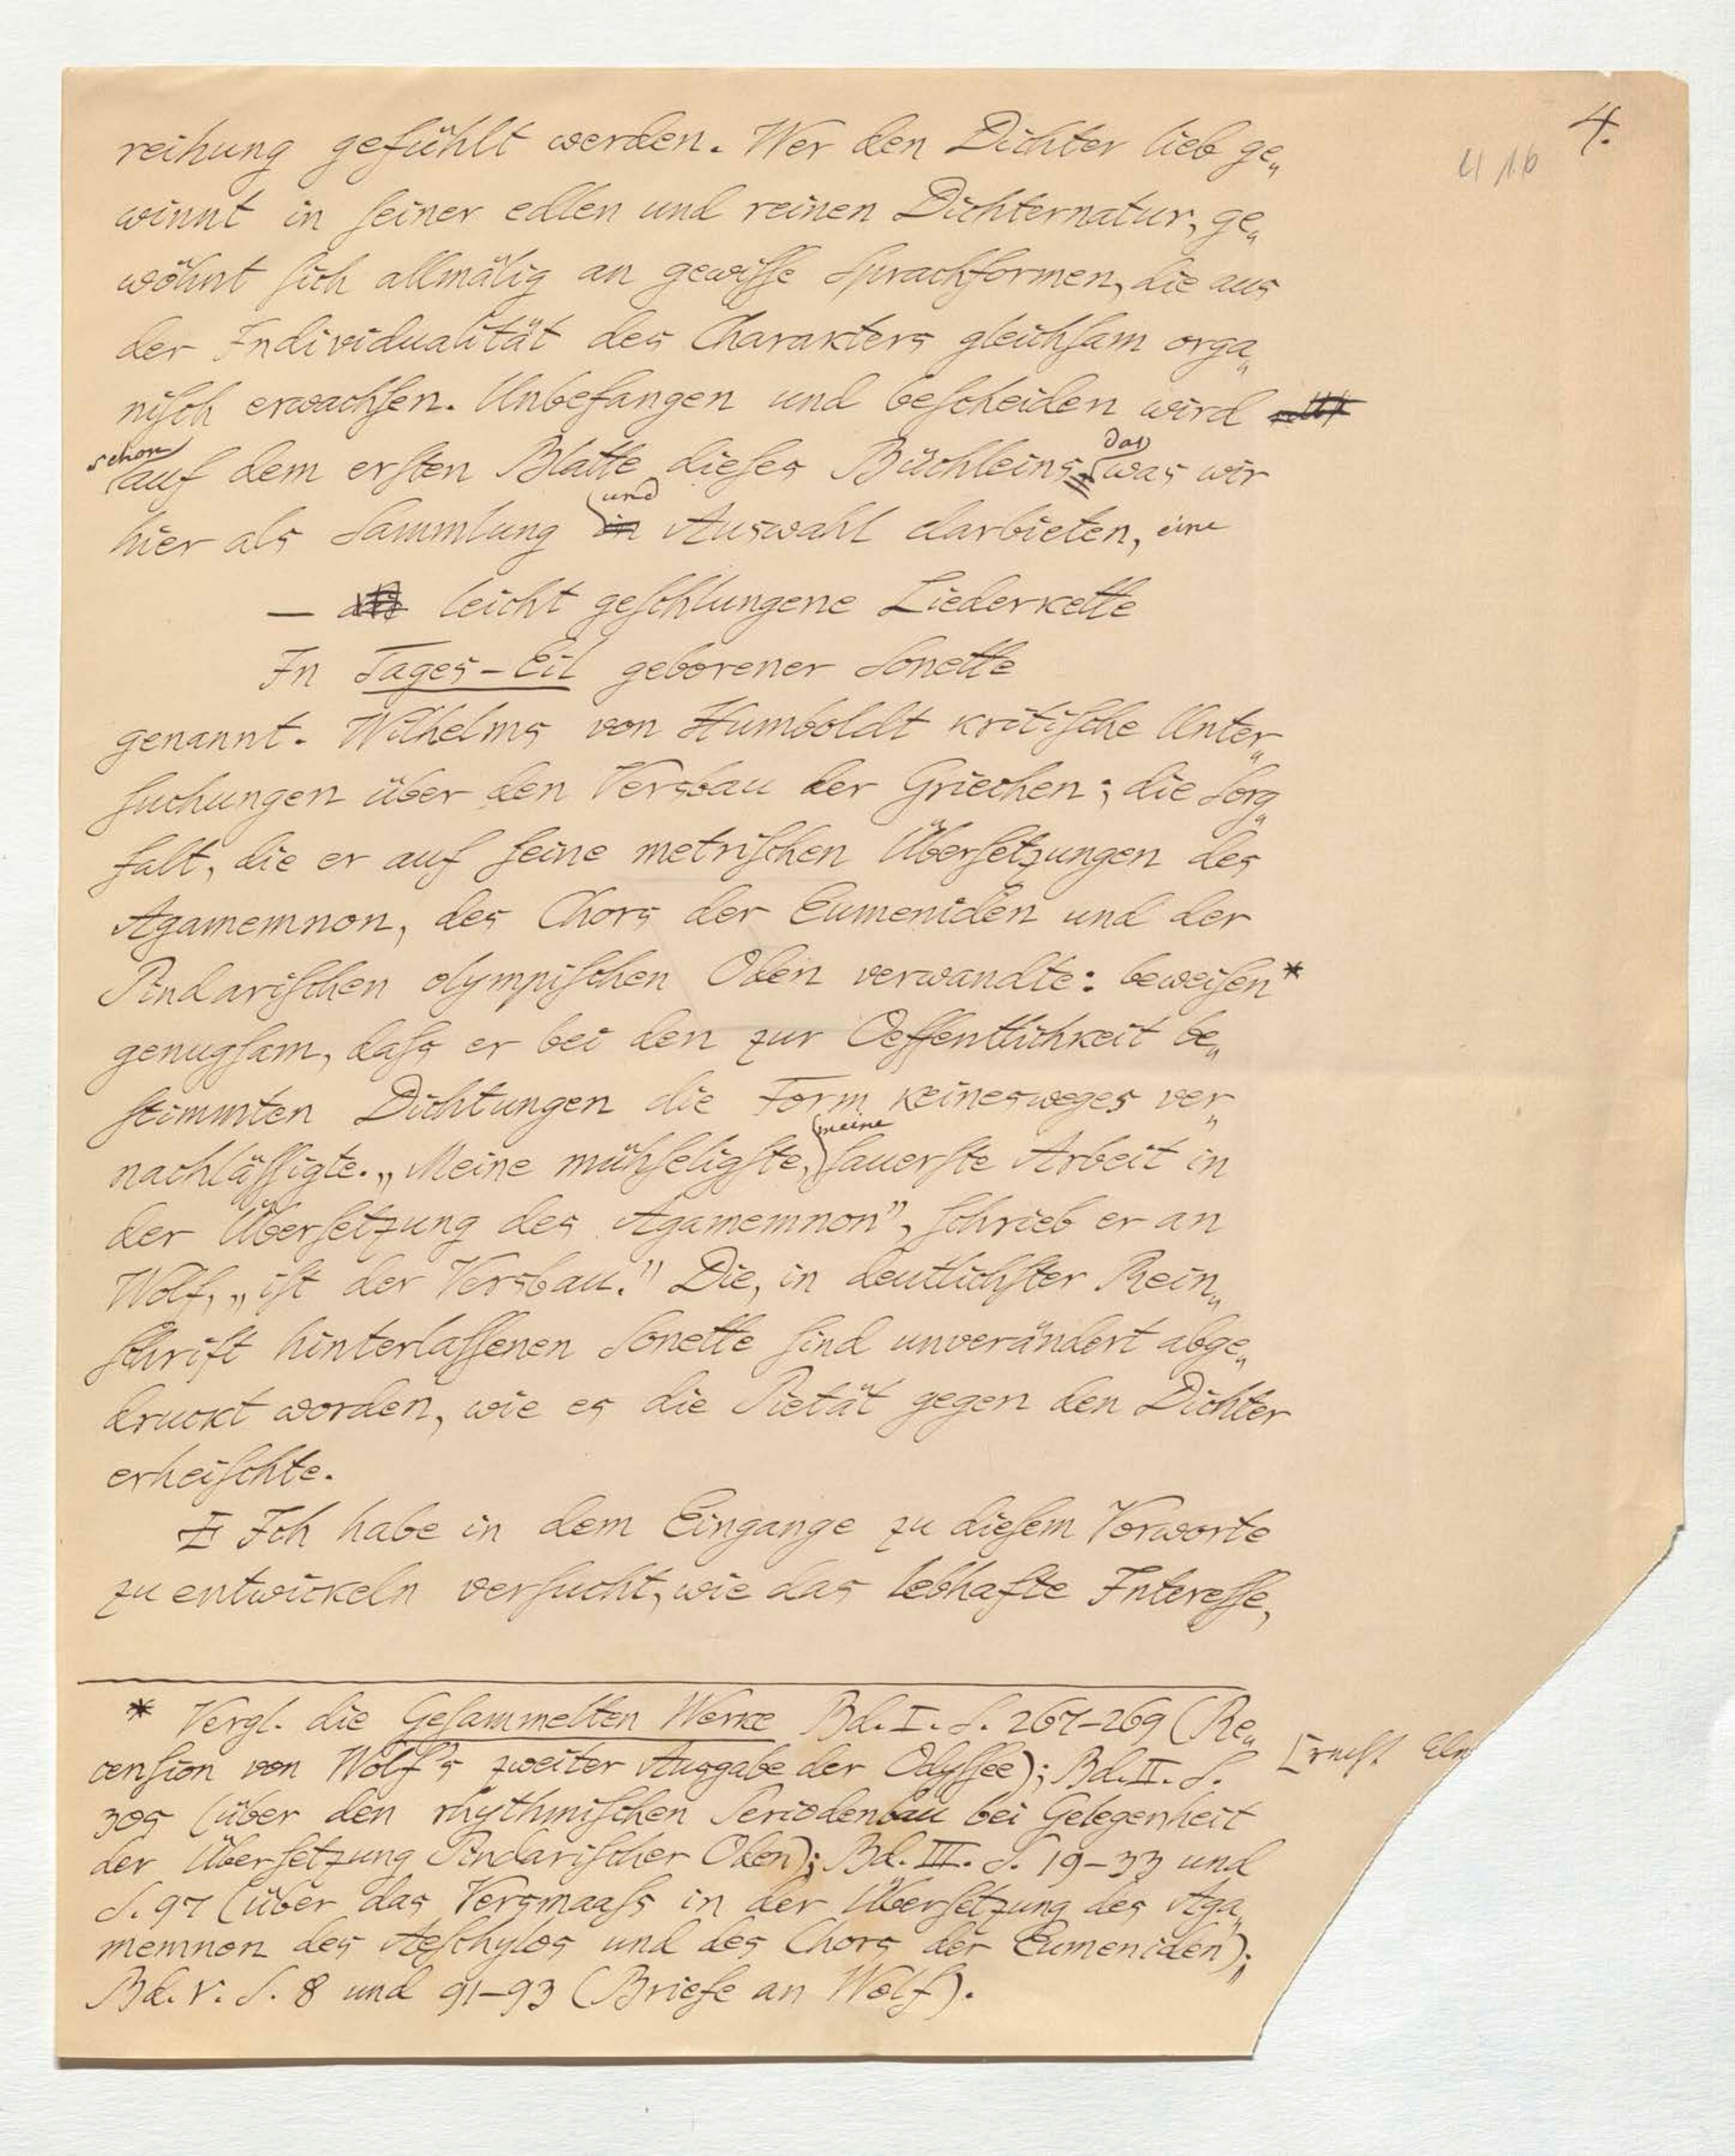 4.
reihung gefühlt werden. Wer den Dichter lieb ge„
winnt in ſeiner edlen und reinen Dichternatur, ge„
wöhnt ſich allmälig an gewiſſe Sprachformen, die aus
der Individualität des Charakters gleichſam orga„
niſch erwachſen. Unbefangen und beſcheiden wird
schon auf dem erſten Blatte dieſes Büchleins das was wir
hier als Sammlung und Auswahl darbieten, eine
— leicht geſchlungene Liederkette
In Tages-Eil geborener Sonette
genannt. Wilhelms von Humboldt kritiſche Unter„
ſuchungen über den Versbau der Griechen; die Sorg„
falt, die er auf ſeine metriſchen Überſetzungen des
Agamemnon, des Chors der Eumeniden und der
Pindariſchen olympiſchen Oden verwandte: beweiſen*
genugſam, daſs er bei den zur Oeffentlichkeit be„
ſtimmten Dichtungen die Form keinesweges ver„
nachläſſigte. „Meine mühſeligſte, meine ſauerſte Arbeit in
der Überſetzung des Agamemnon”, ſchrieb er an
Wolf, „iſt der Versbau.” Die, in deutlichſter Rein„
ſchrift hinterlaſſenen Sonette ſind unverändert abge„
druckt worden, wie es die Pietät gegen den Dichter
erheiſchte.
Ich habe in dem Eingange zu dieſem Vorworte
zu entwickeln verſucht, wie das lebhafte Intereſſe,
* Vergl. die Geſammelten Werke Bd. I. S. 267-269 (Re„
cenſion von Wolf's zweiter Ausgabe der Odyſſee); Bd. II. S.
305 (über den rhythmiſchen Periodenbau bei Gelegenheit
der Überſetzung Pindariſcher Oden); Bd. III. S. 19-33 und
S. 97 (über das Versmaaſs in der Überſetzung des Aga„
memnon des Aeſchylos und des Chors der Eumeniden);
Bd. V. S. 8 und 91-93 (Briefe an Wolf).